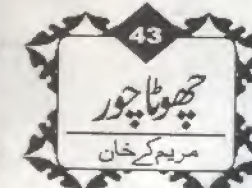 43
چھوٹا چور
مریم کے خان